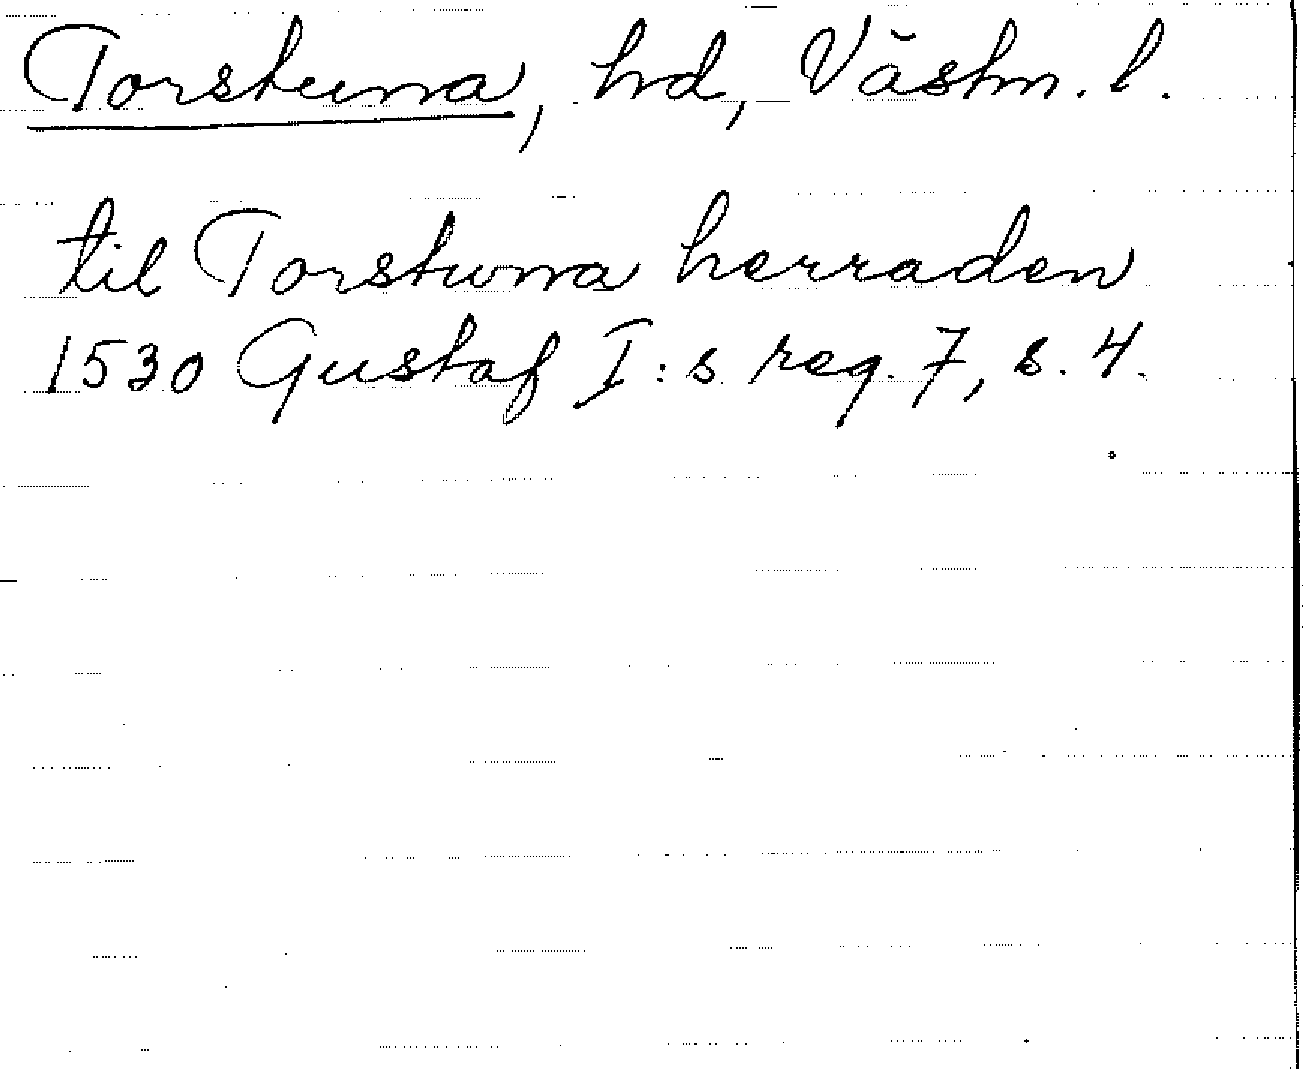 Torstuna, hd, Västm. l.
til Torstuna herraden
1530 Gustaf I:s reg. 7, s. 4.